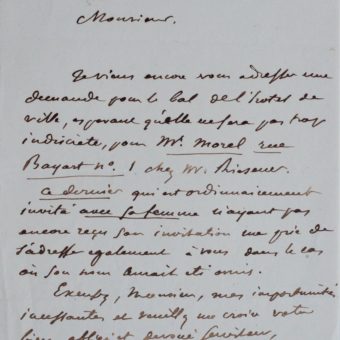 Monsieur.
Je viens encore vous adresser une
demande pour le bal de l'hotel de
ville, esperant qu'elle ne sera pas trop
indiscrète, pour Mr. Morel rue
Bayart no. 1 chez Mr.
Ce dernier qui est ordinairement
invité avec sa femme n'ayant pas
encore reçu son invitation me prie de
l'adresse egalement à vous dans le cas
où son nom aurait eté omis.
Excusez, Monsieur, mes importunités
incessantes et veuillez me croire votre
bien et devoué serviteur,